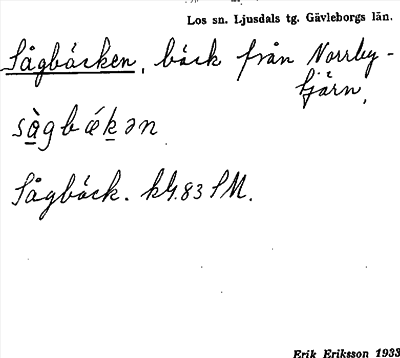 Los sn. Ljusdals tg. Gävleborgs län.
Sågbäcken, bäck från Norrby-
tjärn,
så̀gbǽkən
Sågbäck. 83 SM.
Erik Eriksson 1933